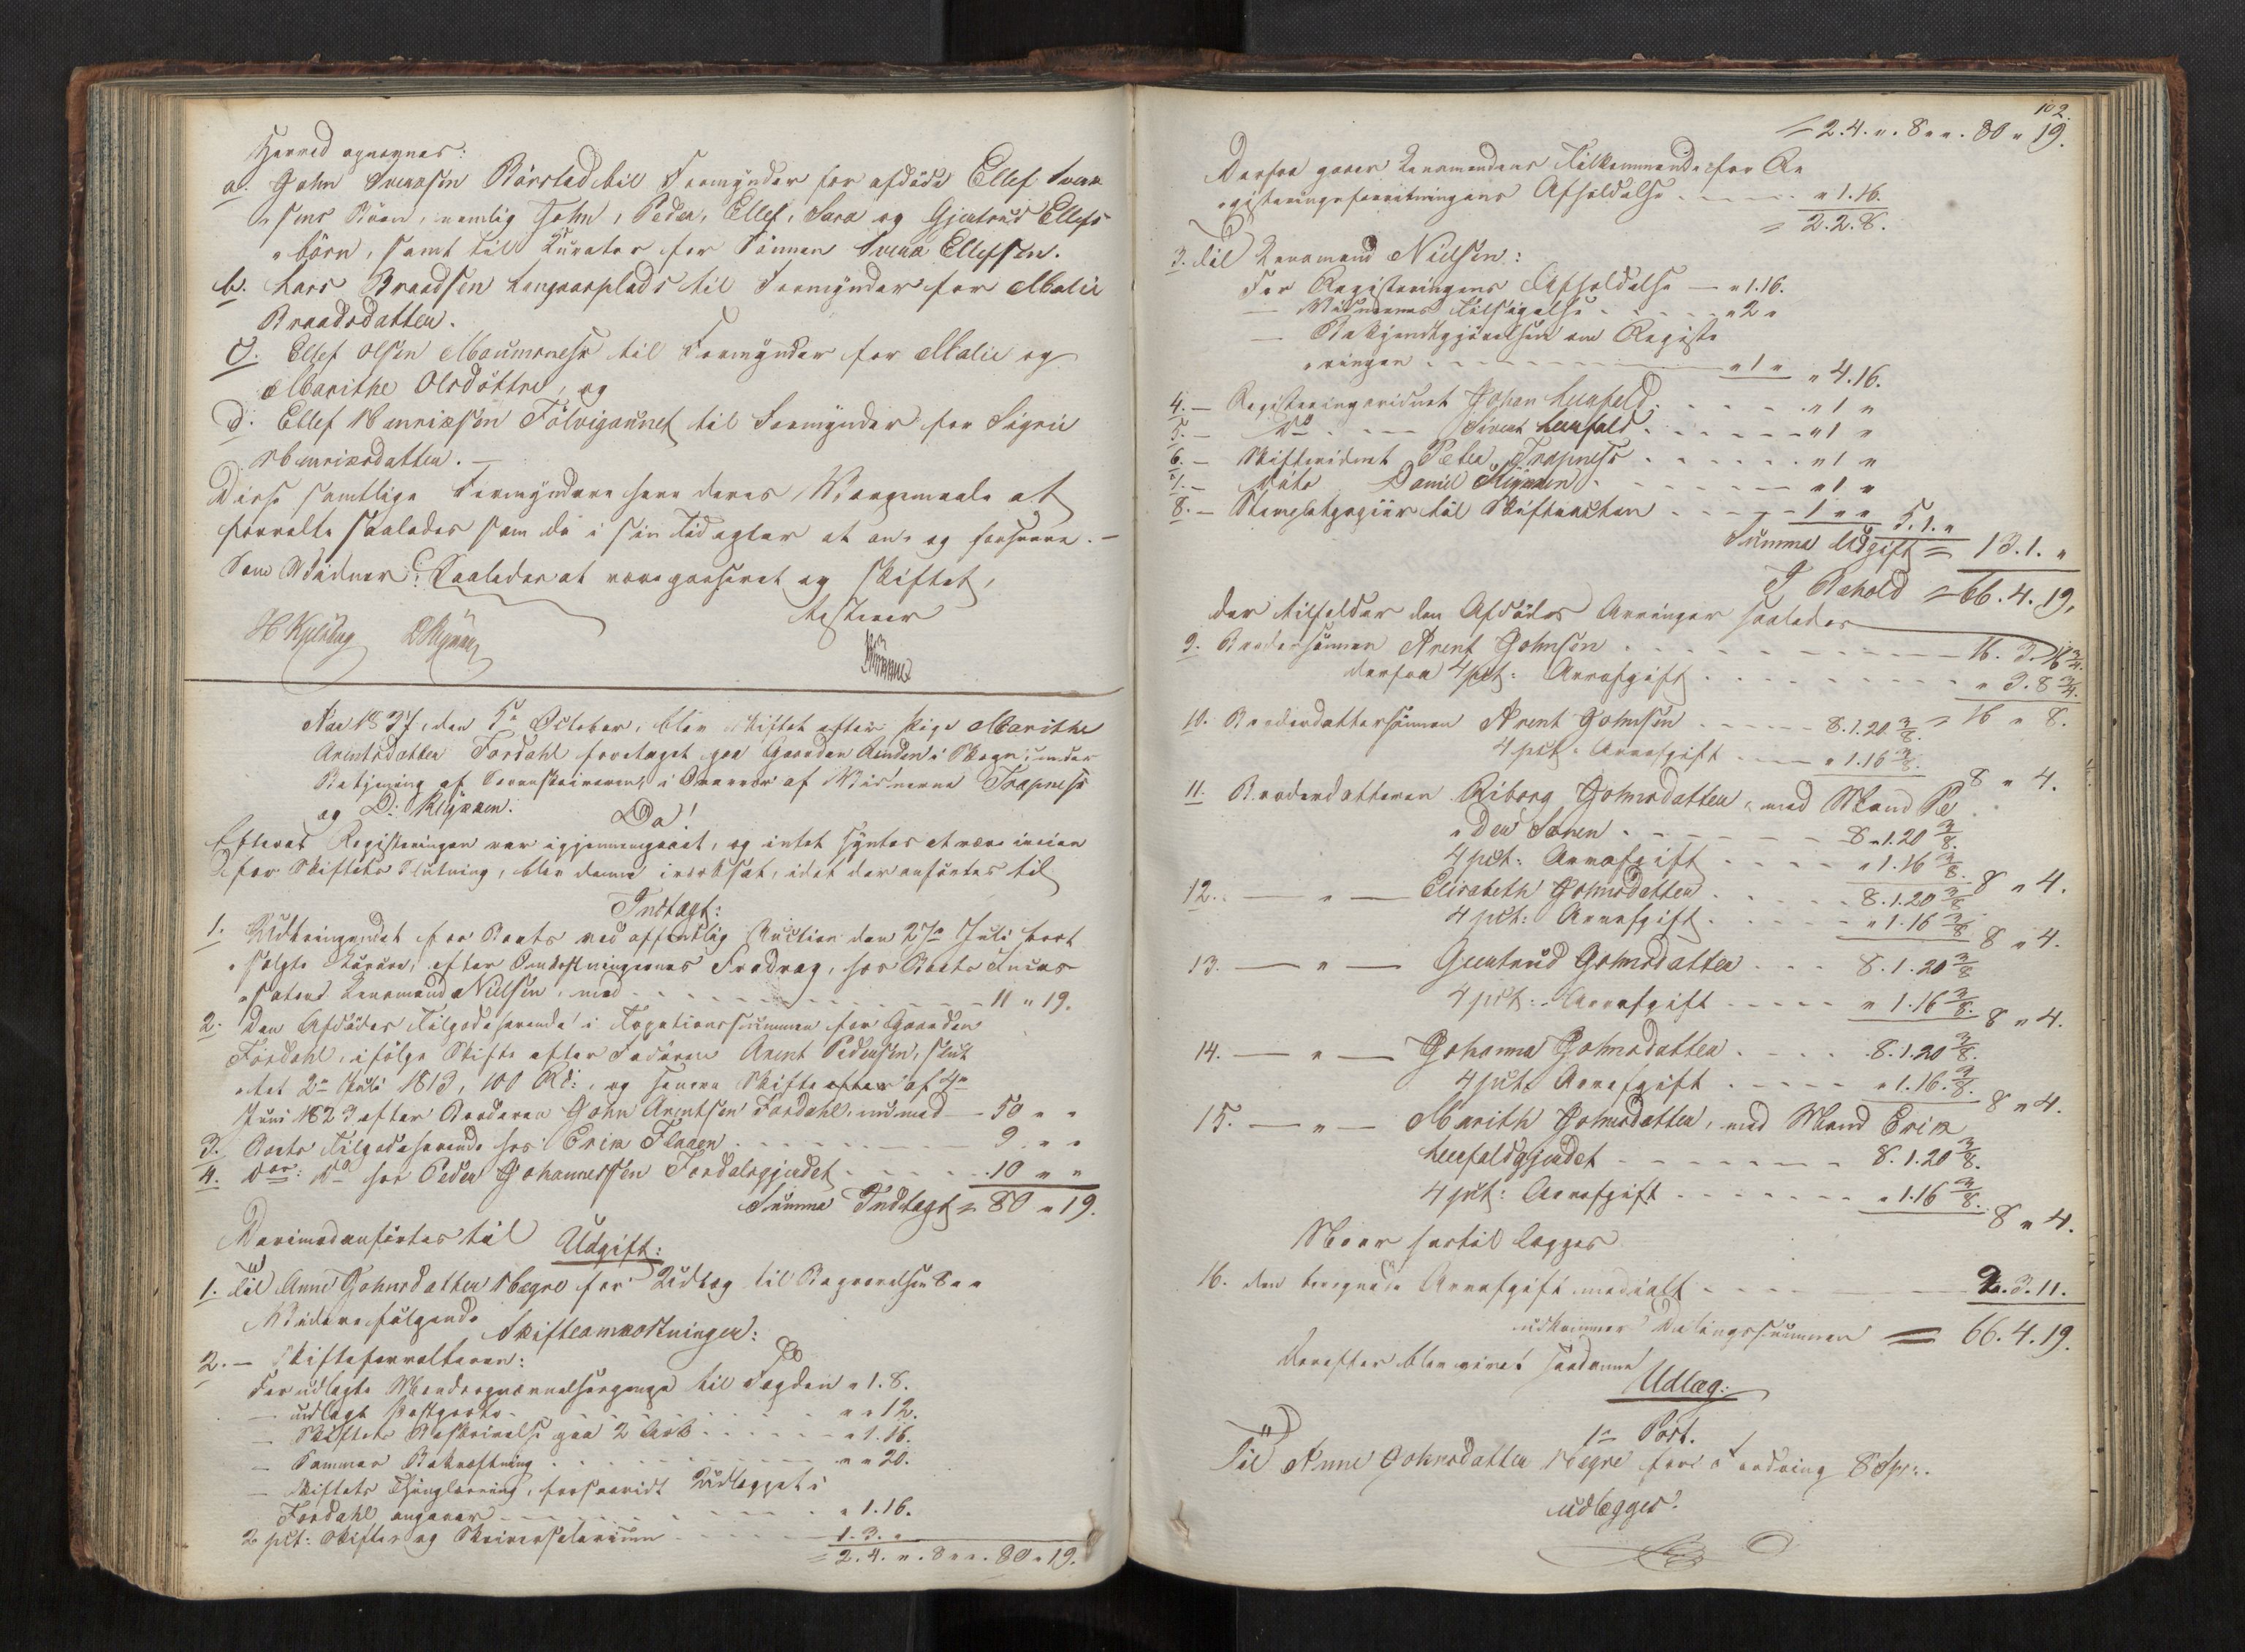 Herred opnevnes:
a. John Svensen Börstad til Formynder for afdöde Ellef Svend
"sens Börn, nemlig John, Peder, Ellef, Sara og Gjertrud Ellefs
"börn, samt til Kurator for Sönnen Svend Ellefsen.
b. Lars Braadsen plads til Formynder for Malie
Braadsdatter.
c. Ellef Olsen til Formynder for Malie og
Marithe Olsdöttre, og
d. Ellef Henriksen til Formynder for Sigrie
Henriksdatter. —
Disse samtlige Formyndere have deres at
forvalte saaledes som de i sin Tid agter at og forsvare. —
Som Vidner: Saaledes at være passeret og skiftet,
testerer
Aar 1837, den 5te October, blev Skiftet efter Pige Marithe
Arentsdatter Fordahl foretaget paa Gaarden i under
Betjening af Sorenskriveren, i Overvær af Vidnerne Trapness
og D:
Da!
Efterat Registeringen var igjennemgaaet, og intet syntes at være iveien
for Skiftets Slutning, blev denne iverksat, idet der anförtes til
Indtægt:
1. for Boets ved offentlig Auction den 27de Juli bort
"solgte efter Omkostningernes Fradrag, hos Boets Incas
"sator Lensmand Nielsen, med - - - 11 " 19.
2. Den Afdödes Tilgodehavende i Taxationssummen for Gaarden
Fordahl, ifölge Skifte efter Faderen Arent Pedersen, slut
"tet 2den Juli 1813, 100 Rd:, og senere Skifte af 4de
Juni 1823 efter Broderen John Arentsen Fordahl, nu med - 50 " "
3. Boets Tilgodehavende hos Erik Flaaen - - - 9 " "
4. Do hos Peder Johannessen Fordalsgjerdet - - - 10 " "
Summa Indtægt = 80 " 19.
Derimod anförtes til
Udgift:
1. Til Anne Johnsdatter Hegre for Udlæg til Begravelsen 8 " "
Videre fölgende Skifteomkostninger:
2. — Skifteforvalteren:
For udlagte til Fogden " 1. 8.
— udlagt Postporto - - - " " 12.
— Skiftets Beskrivelse paa 2 Ark - - - " 1. 16.
— Sammes Bekræftning - - - " " 20.
— Skiftets Thinglæsning, forsaavidt Udlægget i
Fordahl angaaer - - - " 1.16.
2 pCt: Skifter og Skriversalarium - - - 1. 3. "
= 2. 4. ". 8 " ". 80 " 19.
102.
= 2. 4. ". 8 " ". 80 " 19.
Derfra gaaer Lensmandens Tilkommende for Re
"gisteringsforretningens Afholdelse - - - " 1. 16.
= 2. 2. 8.
3. Til Lensmand Nielsen:
For Registeringens Afholdelse — " 1.16.
— Vidnernes Tilsigelse - - - " 2 "
— Bekjendtgjörelsen om Registe
"ringen - - - " 1 " " 4.16.
4. — Registeringsvidnet Johan Leufald - - - " 1 "
5. — Do - - - Sivert Leufald - - - " 1 "
6. — Skiftevidnet Peter Trapness - - - " 1 "
7. — Dito Daniel - - - " 1 "
8. — Stempletpapiir til Skifteacten - - - 1 " " 5. 1. "
Summa Udgift = 13. 1. "
I Behold = 66. 4. 19.
der tilfalder den Afdödes Arvinger saaledes
9. Brodersönnen Arent Johnsen - - - 16. 3. 16 3/4.
derfra 4 pCt: Arveafgift - - - " 3. 8 3/4.
= 16 " 8.
10. Broderdattersönnen Arent Johnsen - - - 8. 1. 20 3/8.
4 pCt: Arveafgift - - - " 1. 16 3/8.
8 " 4.
11. Broderdatteren Riborg Johnsdatter, med Mand Pe
"der - - - 8 " 1. 20 3/8.
4 pCt: Arveafgift - - - " 1. 16 3/8.
8 " 4.
12. — " — Elisabeth Johnsdatter - - - 8. 1. 20 3/8
4 pCt: Arveafgift - - - " 1. 16 3/8
8 " 4.
13. — " — Gjertrud Johnsdatter - - - 8. 1. 20 3/8
4 pCt: Arveafgift - - - " 1. 16 3/8.
8 " 4.
14. — " — Johanna Johnsdatter - - - 8. 1. 20 3/8.
4 pCt: Arveafgift - - - " 1. 16. 3/8.
8 " 4.
15. — " — Marith Johnsdatter, med Mand Erik
Leufaldgjerdet - - - 8. 1. 20 3/8.
4 pCt: Arveafgift - - - " 1.16 3/8.
8 " 4.
Naar hertil lægges
16. den beregnede Arveafgift medialt - - - 2. 3. 11.
udkommer Delingssummen = 66. 4. 19.
Derefter blev giort saadanne
Udlæg:
1ste Post.
Til Anne Johnsdatter Hegre for Fordring 8 Spr:.
udlægges: